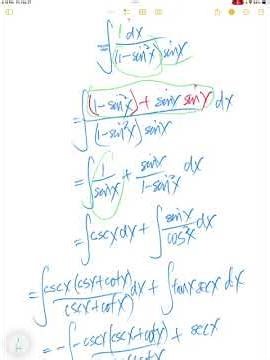 = ∫ 1dx / (1-sin²x) sinx
= ∫ (1-sin²x) + sinx sinx / (1-sin²x) sinx dx
= ∫ 1/sinx + sinx/1-sin²x dx
= ∫ cscx dx + ∫ sinx/cos²x dx
= ∫ cscx (cscx+cotx) / cscx+cotx dx + ∫ tanx secx dx
= - ∫ -cscx (cscx+cotx) / cscx+cotx + secx